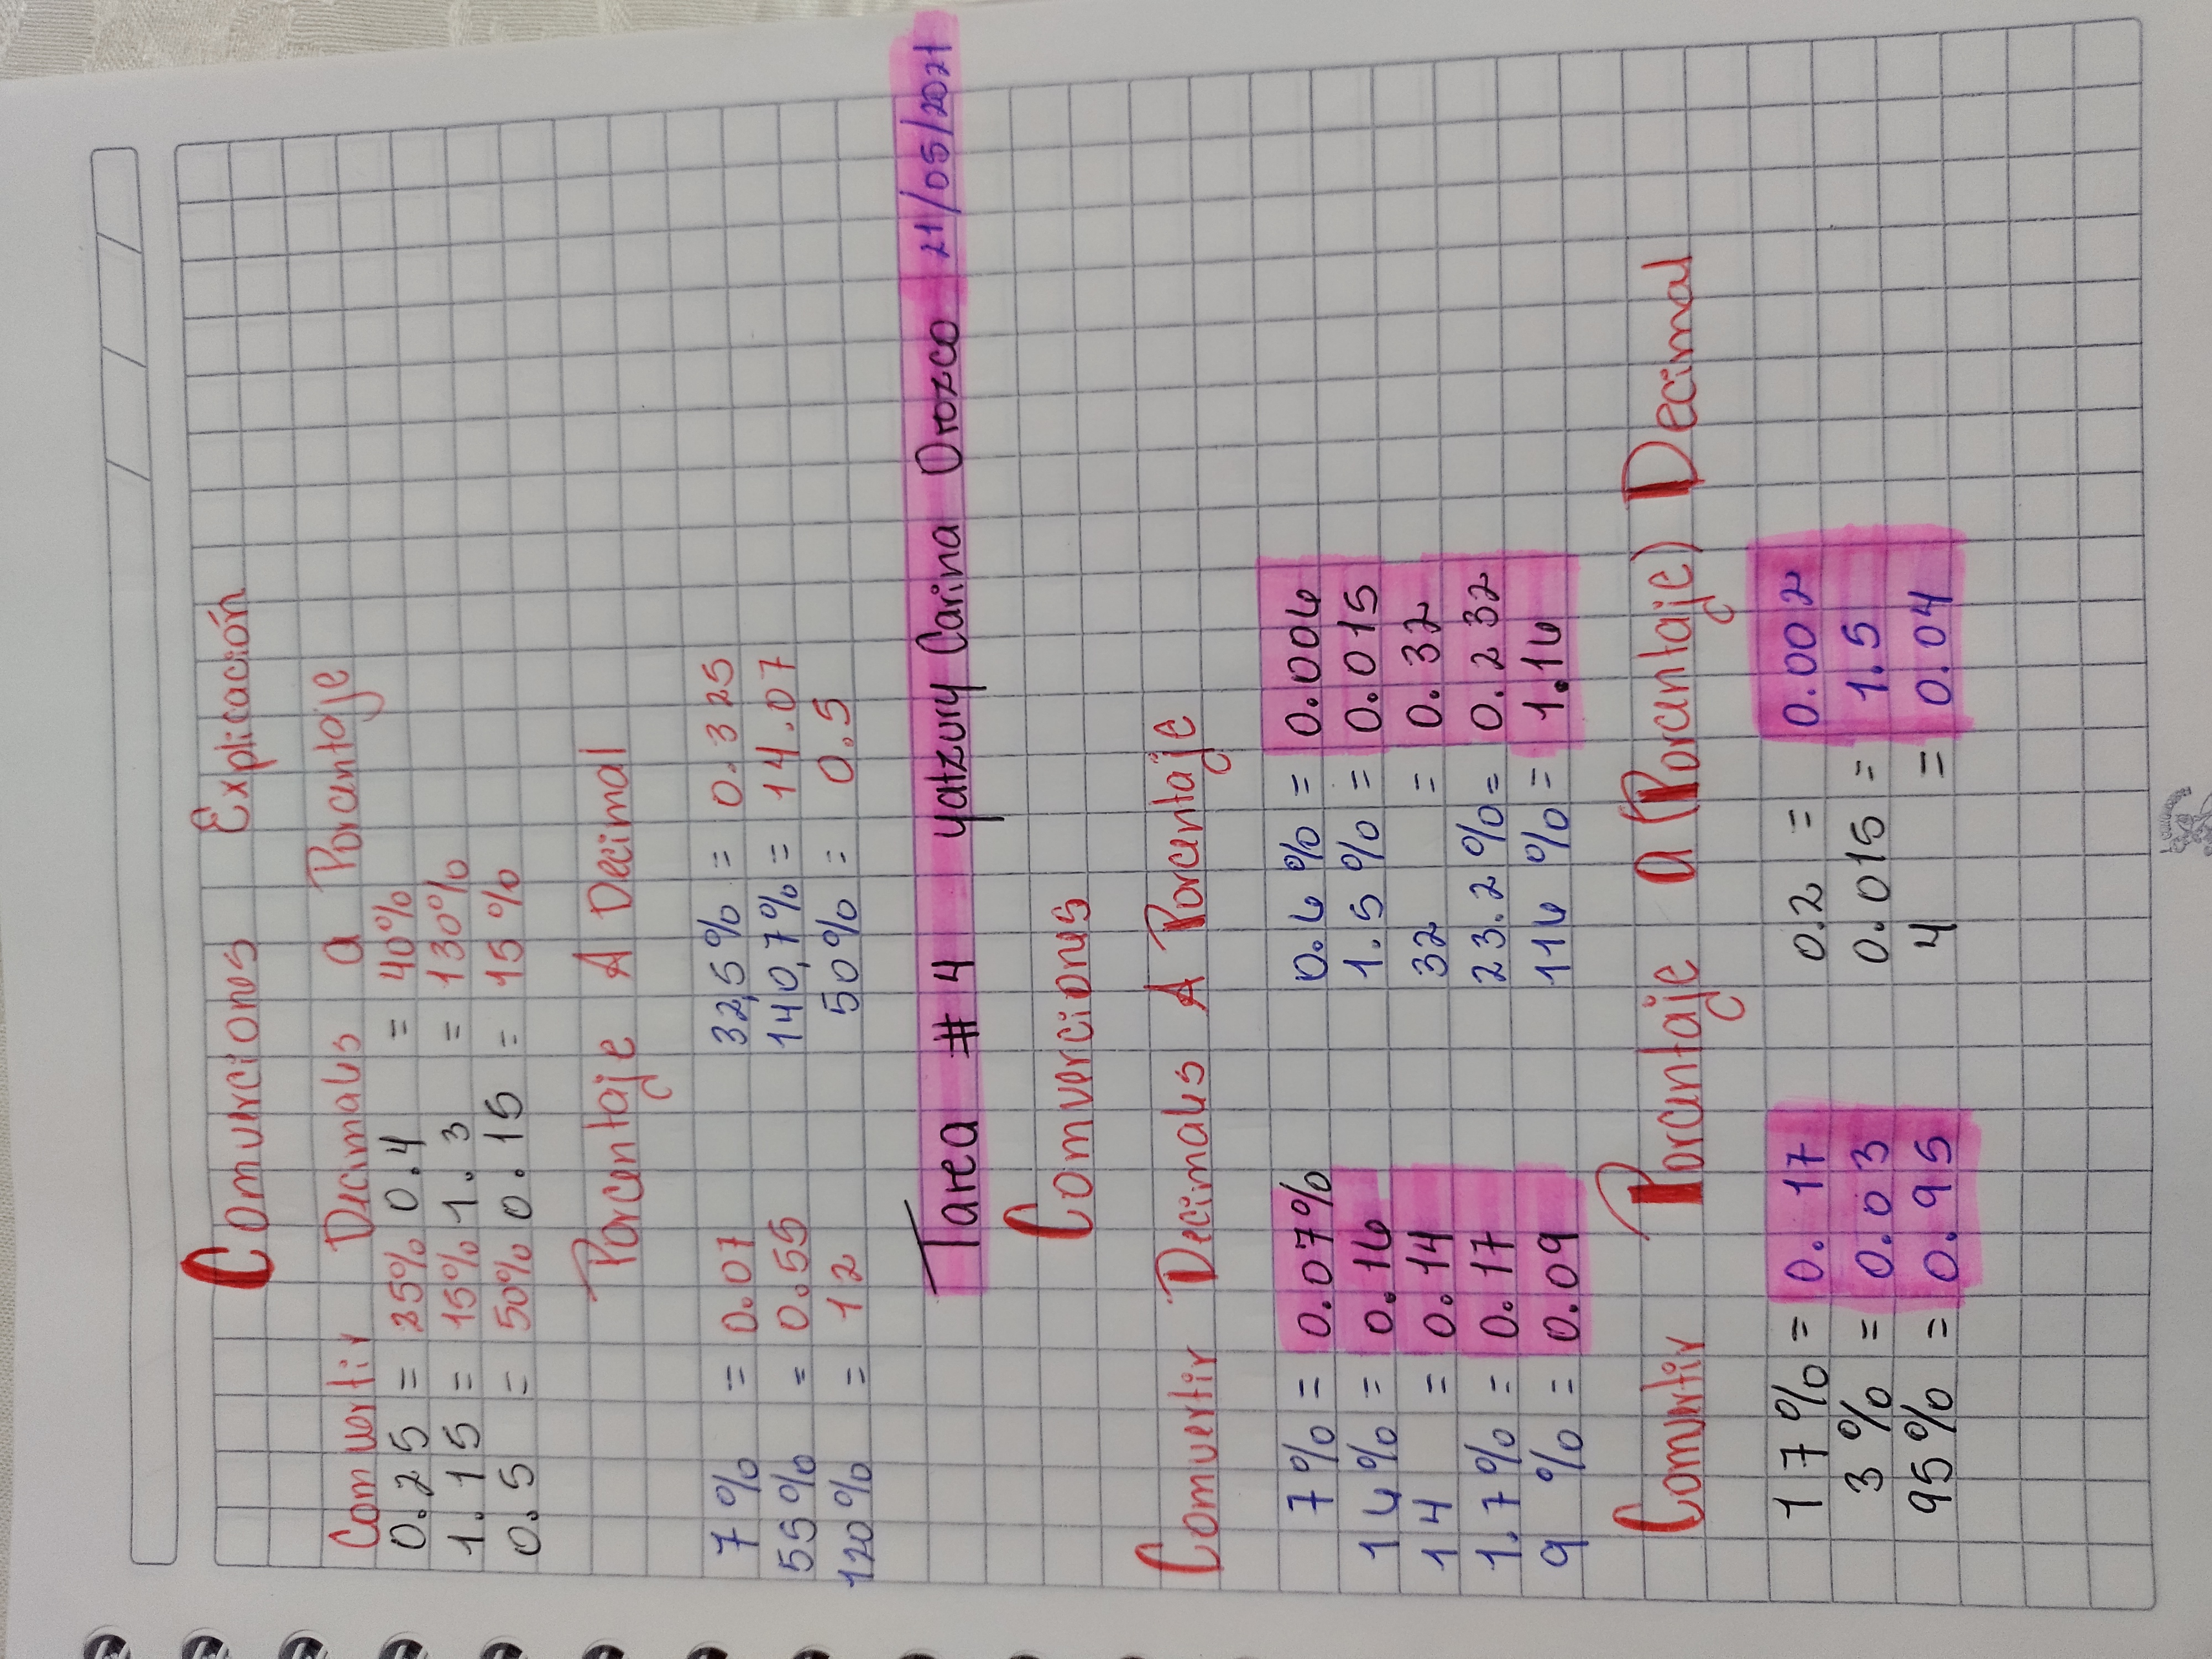 Comverciones Explicación
Comvertir Decimales a Porcentaje
0.25 = 25% 0.4 = 40%
1.15 = 15% 1.3 = 130%
0.5 = 50% 0.15 = 15%
Porcentaje A Decimal
7% = 0.07 32,5% = 0.325
55% = 0.55 140,7% = 14.07
120% = 12 50% = 0.5
Tarea # 4 yatzury Carina Orozco 21/05/2021
Comverciones
Comvertir Decimales A Porcentaje
7% = 0.07% 0.6% = 0.006
16% = 0.16 1.5% = 0.015
14 = 0.14 32 = 0.32
1.7% = 0.17 23.2% = 0.232
9% = 0.09 116% = 1.16
Comvertir Porcentaje a (Porcentaje) Decimal
17% = 0.17 0.2 = 0.002
3% = 0.03 0.015 = 1.5
95% = 0.95 4 = 0.04